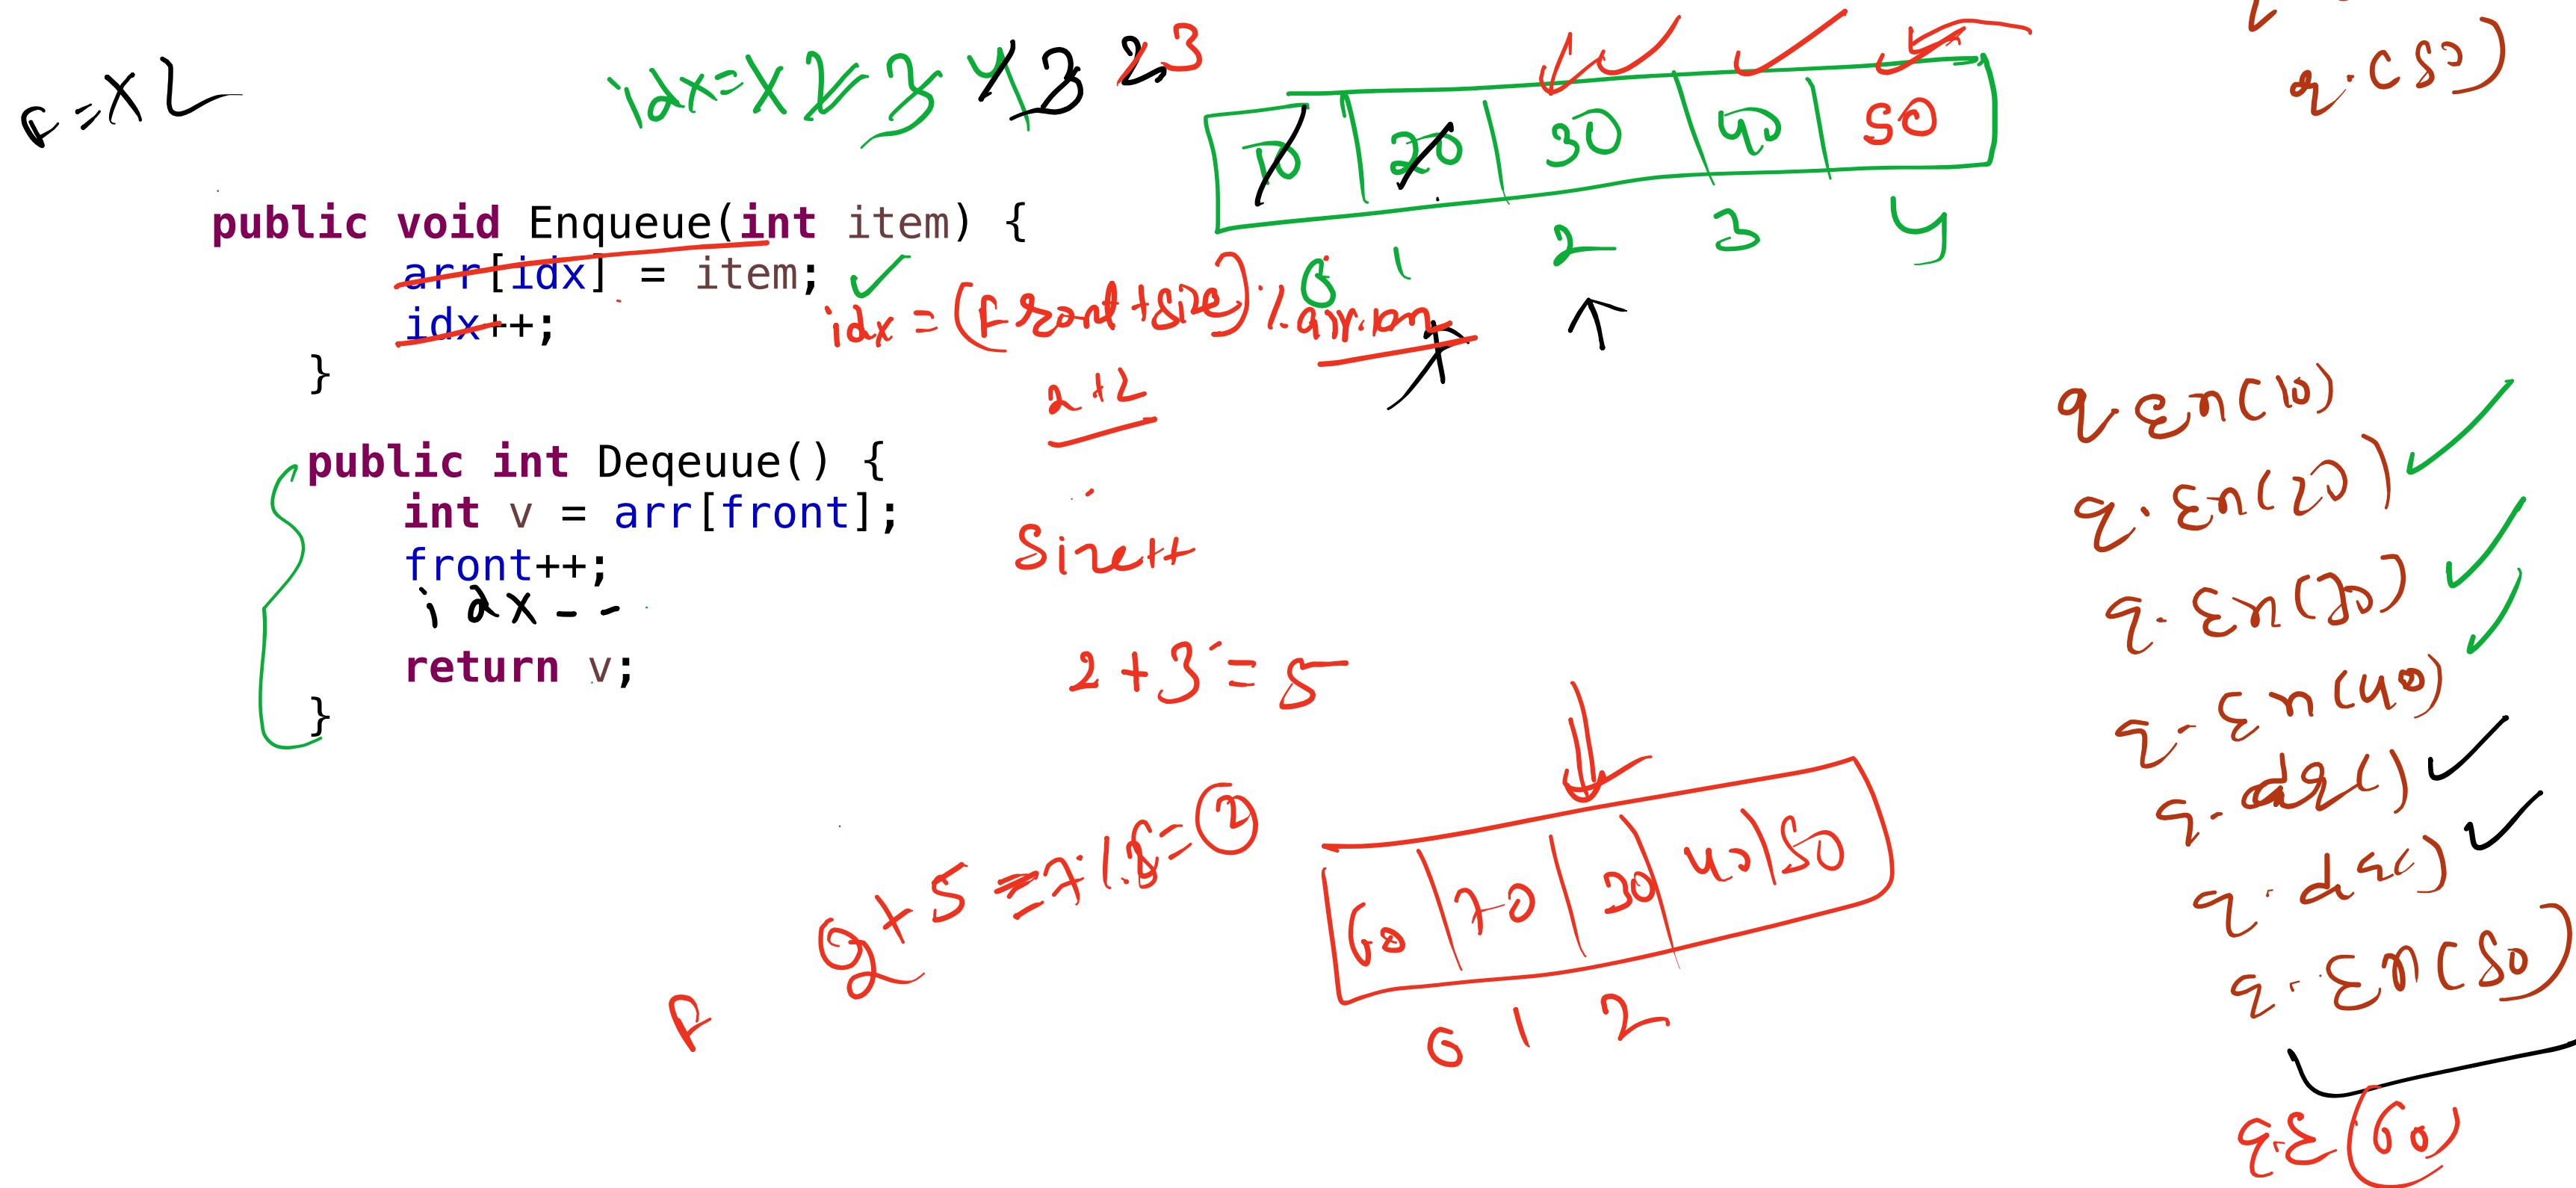 q.(50)
F = X 2
idx = X 2 3 4 3 2 3
10 20 30 40 50
0 1 2 3 4
public void Enqueue(int item) {
arr[idx] = item;
idx++;
}
idx = (Front+size) % arr.len
2+2
public int Deqeuue() {
int v = arr[front];
front++;
idx--
return v;
}
size++
2+3=5
2+5=7%5=2
F
60 70 30 40 50
0 1 2
q.En(10)
q.En(20)
q.En(30)
q.En(40)
q.dq()
q.dq()
q.En(50)
q.E(60)